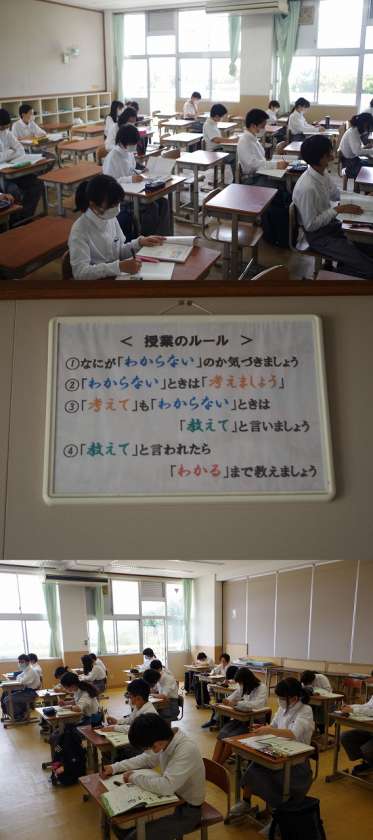 ＜ 授業のルール ＞
①なにが「わからない」のか気づきましょう
②「わからない」ときは「考えましょう」
③「考えて」も「わからない」ときは
「教えて」と言いましょう
④「教えて」と言われたら
「わかる」まで教えましょう